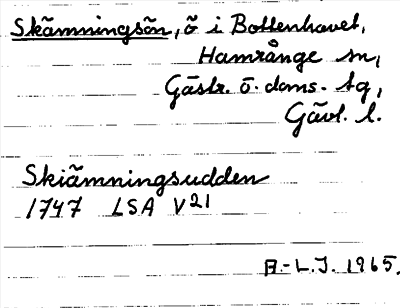 Skämningsön, ö i Bottenhavet,
Hamrånge sn,
Gästr. ö. doms. tg,
Gävl. l.
Skiämningsudden
1747 LSA V21
A.-L.J. 1965.